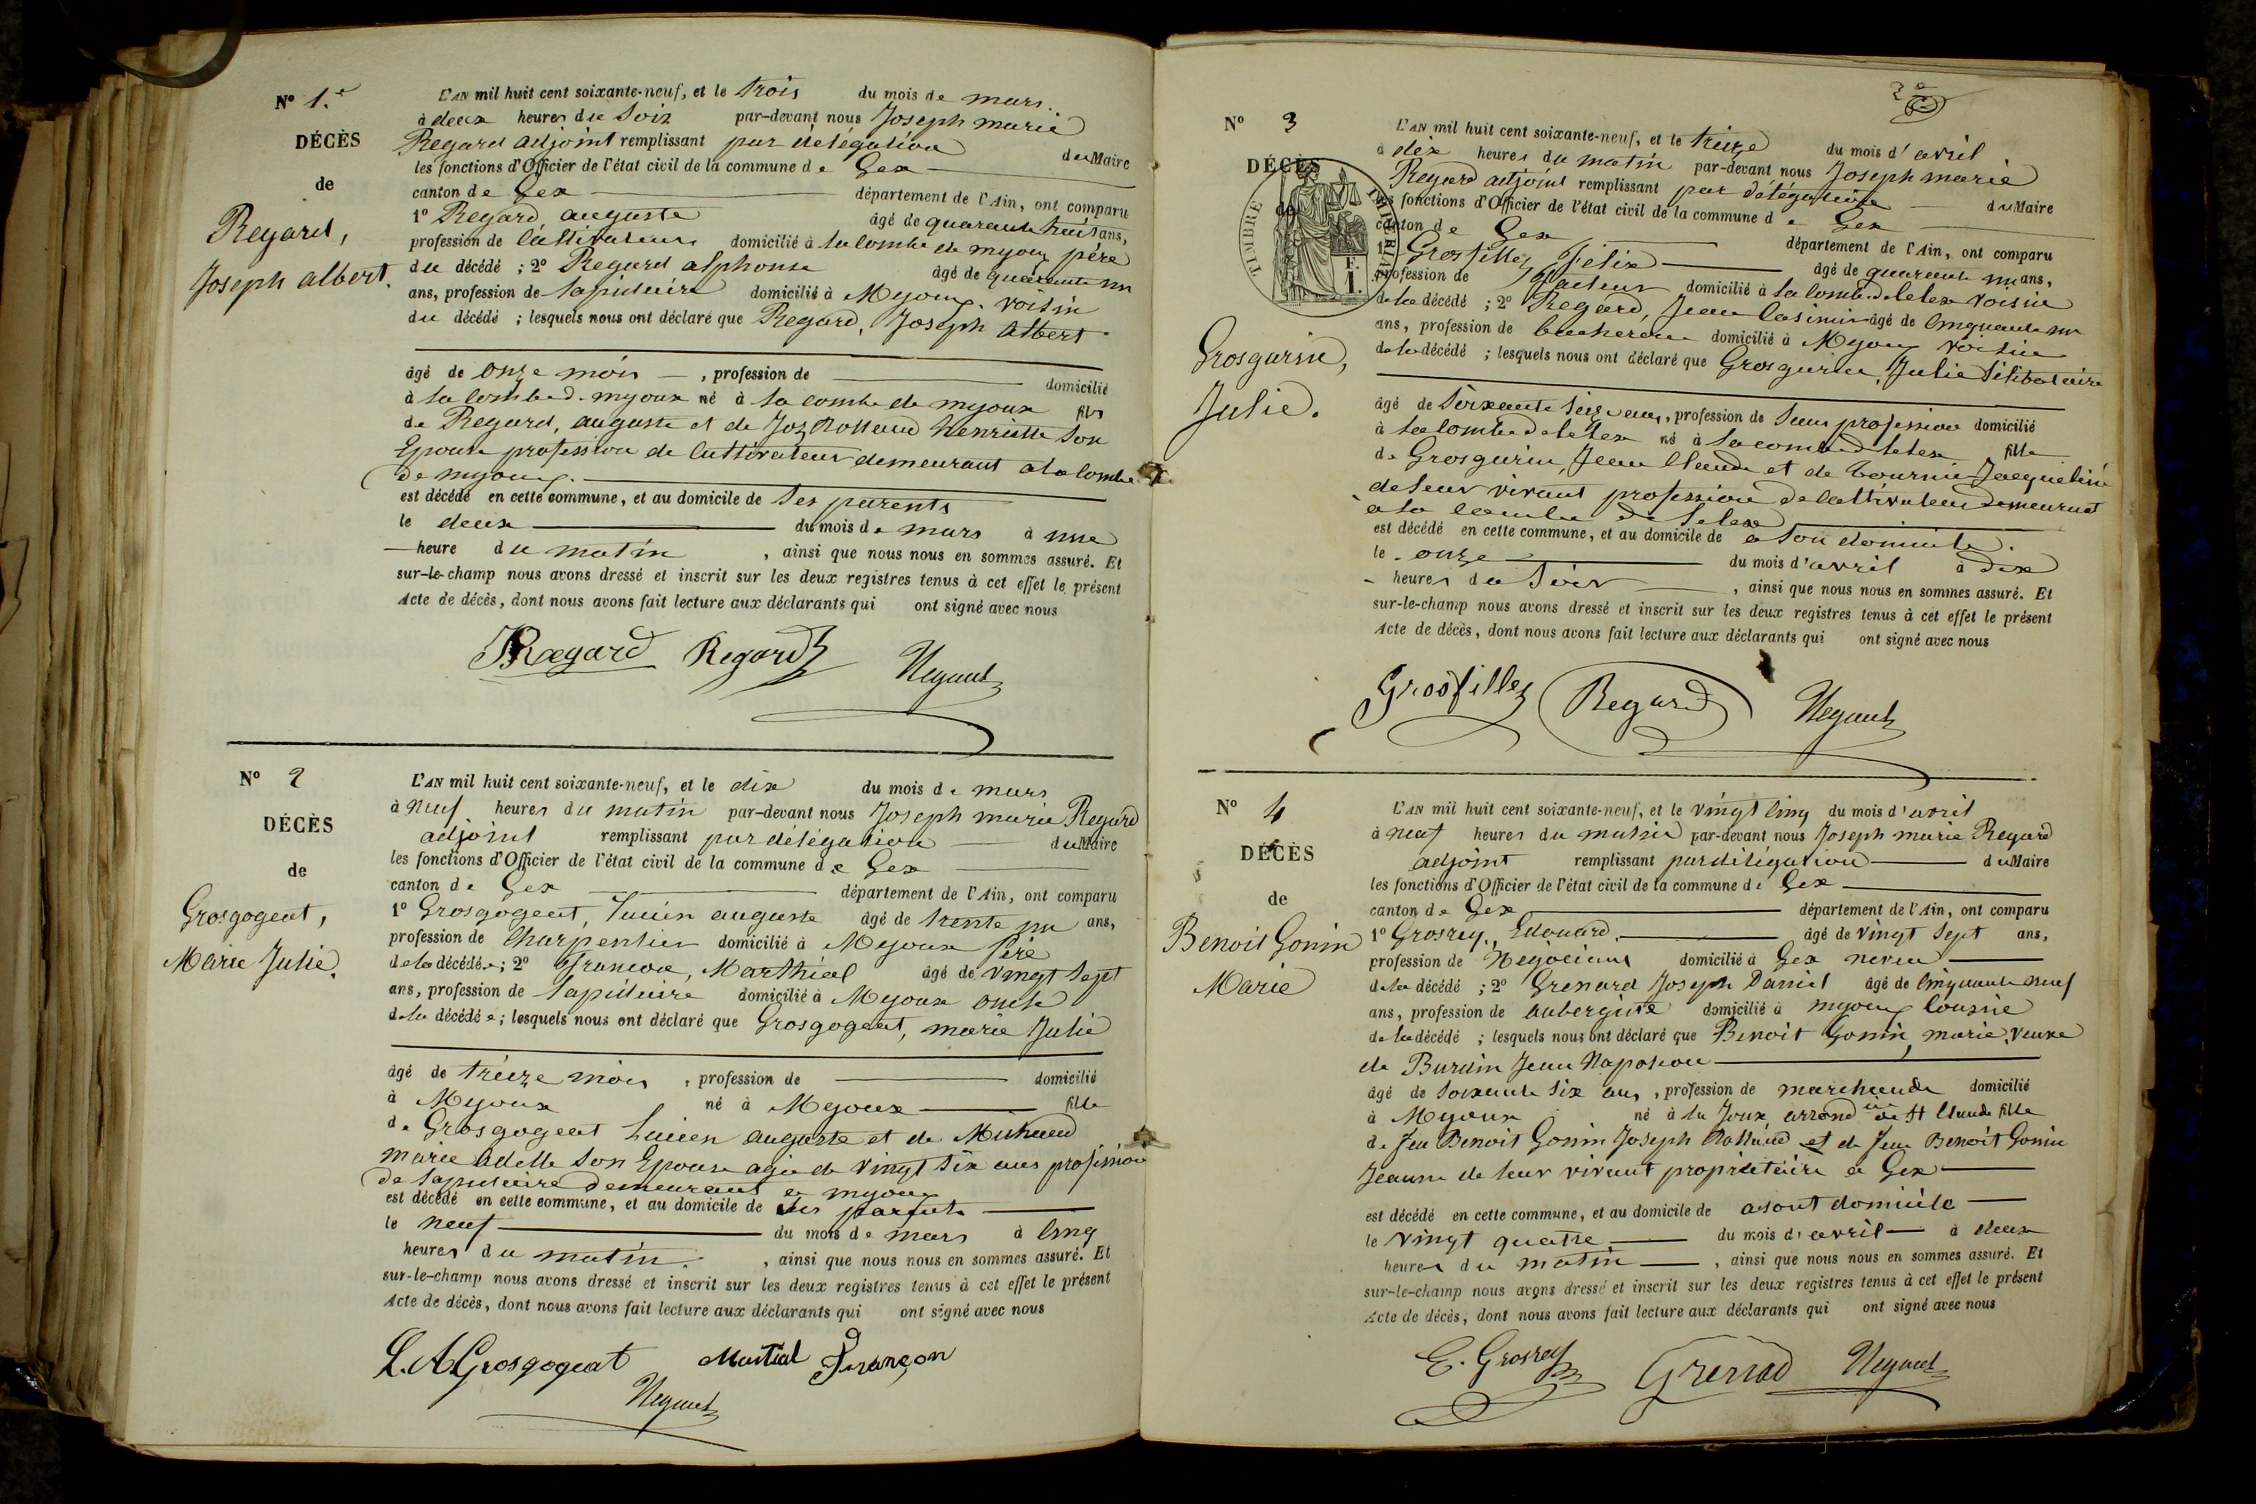 N° 1.er
DÉCÈS
de
Regard,
Joseph albert.
L'AN mil huit cent soixante-neuf, et le trois du mois de mars.
à deux heures du Soir par-devant nous Joseph marie
Regard adjoint remplissant par délégation du Maire
les fonctions d'Officier de l'état civil de la commune de Gex
canton de Gex département de l'Ain, ont comparu
1° Regard auguste âgé de quarante huit ans,
profession de Cultivateur domicilié à la combe de myoux père
du décédé ; 2° Regard alphonse âgé de quarante un
ans, profession de lapidaire domicilié à Myoux. voisin
du décédé ; lesquels nous ont déclaré que Regard, Joseph Albert
âgé de onze mois , profession de domicilié
à la combe d. myoux né à la combe de myoux fils
de Regard, auguste et de Joz Rolland henriette Son
Epouse profession de Cultivateur demeurant a la Combe
de myoux.
est décédé en cette commune, et au domicile de Ses parents
le deux du mois de mars à une
heure du matin , ainsi que nous nous en sommes assuré. Et
sur-le-champ nous avons dressé et inscrit sur les deux registres tenus à cet effet le présent
Acte de décès, dont nous avons fait lecture aux déclarants qui ont signé avec nous
Regard Regard
N° 2
DÉCÈS
de
Grosgogeat,
Marie Julie.
L'AN mil huit cent soixante-neuf, et le dix du mois de mars
à neuf heures du matin par-devant nous Joseph marie Regard
adjoint remplissant par délégation du Maire
les fonctions d'Officier de l'état civil de la commune de Gex
canton de Gex département de l'Ain, ont comparu
1° Grosgogeat, Lucien auguste âgé de trente un ans,
profession de Charpentier domicilié à Myoux Père
de la décédée ; 2° Marthial âgé de vingt Sept
ans, profession de lapidaire domicilié à Myoux oncle
de la décédée ; lesquels nous ont déclaré que Grosgogeat, marie Julie
âgé de treize mois , profession de domicilié
à Myoux né à Myoux fille
de Grosgogeat Lucien auguste et de Michaud
marie Adelle Son Epouse agée de vingt Six ans profession
de lapidaire demeurant a myoux
est décédé en cette commune, et au domicile de Ses parents
le neuf du mois de mars à Cinq
heures du matin. , ainsi que nous nous en sommes assuré. Et
sur-le-champ nous avons dressé et inscrit sur les deux registres tenus à cet effet le présent
Acte de décès, dont nous avons fait lecture aux déclarants qui ont signé avec nous
L. A Grosgogeat Martial Françon
2e
N° 3
DÉCÈS
de
TIMBRE IMPÉRIAL
F.
1.
Grosgurin,
Julie.
L'AN mil huit cent soixante-neuf, et le treize du mois d'avril
à dix heures du matin par-devant nous Joseph marie
Regard adjoint remplissant par délégation du Maire
les fonctions d'Officier de l'état civil de la commune de Gex
canton de Gex département de l'Ain, ont comparu
1° Grosfilley Félix âgé de quarante un ans,
profession de facteur domicilié à la Combe delelex voisin
de la décédé ; 2° Regard, Jean Casimir âgé de Cinquante un
ans, profession de bucheron domicilié à Myoux voisin
de la décédé ; lesquels nous ont déclaré que Grosgurin, Julie Célibataire
âgé de Soixante Seize ans, profession de Sans profession domicilié
à la Combe delelex né à la combe delelex fille
de Grosgurin, Jean Claude et de tournier Jacqueline
de leur vivant profession de Cultivateur demeurant
a la combe de lelex
est décédé en cette commune, et au domicile de a Son domicile.
le onze du mois d'avril à dix
heures du Soir , ainsi que nous nous en sommes assuré. Et
sur-le-champ nous avons dressé et inscrit sur les deux registres tenus à cet effet le présent
Acte de décès, dont nous avons fait lecture aux déclarants qui ont signé avec nous
Grosfilley Regard
N° 4
DÉCÈS
de
Benoit Gonin
Marie
L'AN mil huit cent soixante-neuf, et le vingt Cinq du mois d'avril
à neuf heures du matin par-devant nous Joseph marie Regard
adjoint remplissant par délégation du Maire
les fonctions d'Officier de l'état civil de la commune de Gex
canton de Gex département de l'Ain, ont comparu
1° Grosrey, Edouard. âgé de vingt Sept ans,
profession de Négociant domicilié à Gex neveu
de la décédé ; 2° Grenard Joseph Daniel âgé de Cinquante neuf
ans, profession de aubergiste domicilié à myoux Cousin
de la décédé ; lesquels nous ont déclaré que Benoit Gonin, marie, veuve
de Burdin Jean Napoléon
âgé de Soixante Six ans , profession de marchande domicilié
à Myoux né à la Joux, arrond de St Claude fille
de feu Benoit Gonin Joseph Rolland et de feue Benoit Gonin
Jeanne de leur vivant propriétaire a Gex
est décédé en cette commune, et au domicile de a sont domicile
le vingt quatre du mois d'avril à deux
heures du matin , ainsi que nous nous en sommes assuré. Et
sur-le-champ nous avons dressé et inscrit sur les deux registres tenus à cet effet le présent
Acte de décès, dont nous avons fait lecture aux déclarants qui ont signé avec nous
E. Grosrey Grenard